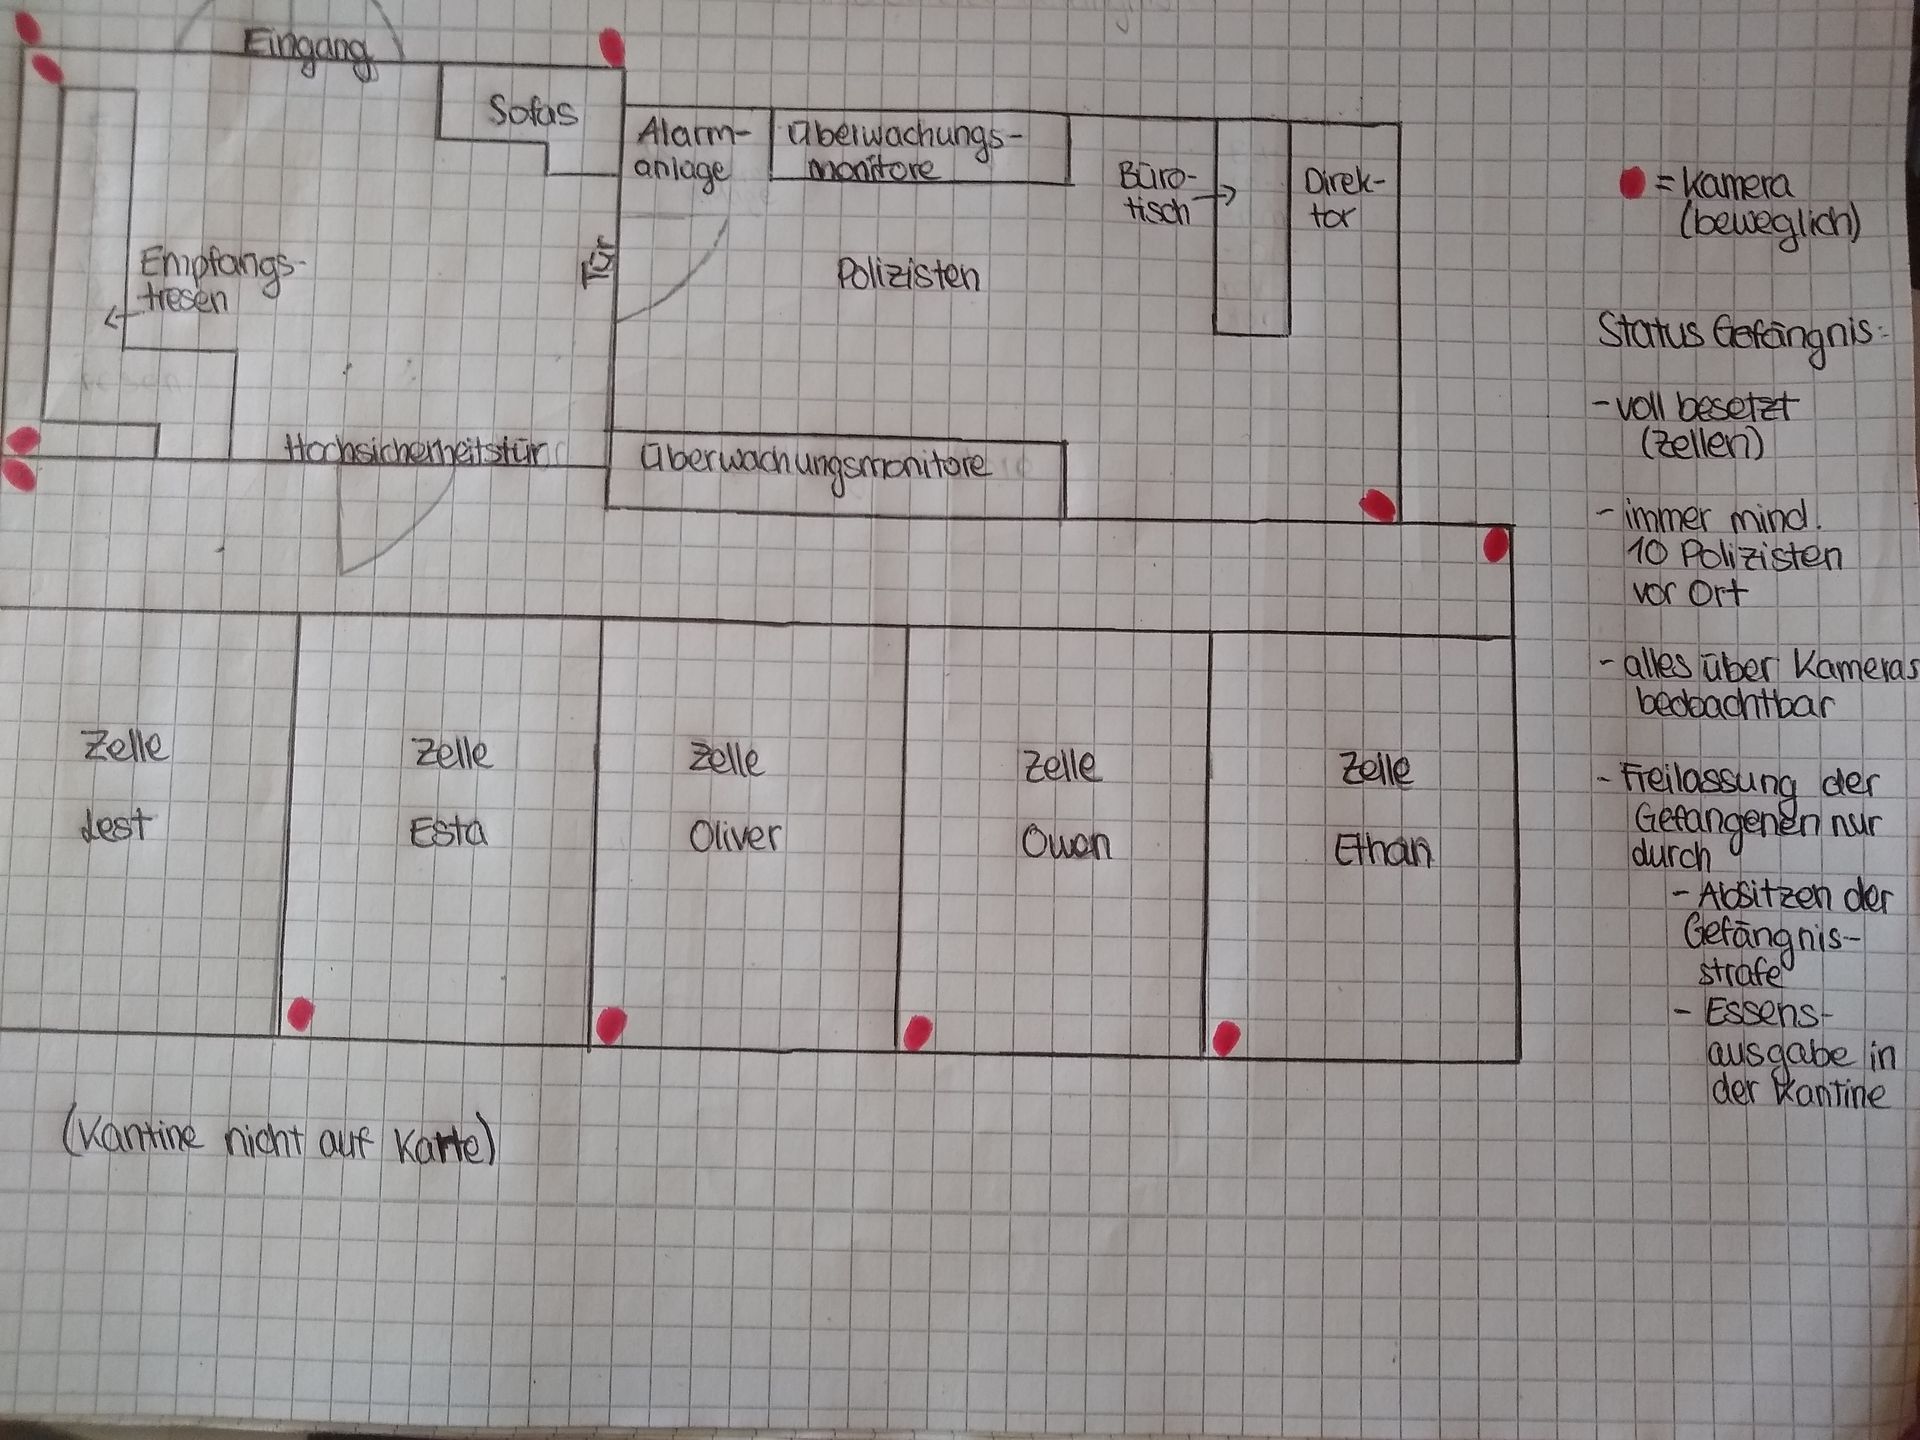 Eingang
Sofas
Alarm-
anlage
Überwachungs-
monitore
Büro-
tisch
Direk-
tor
Empfangs-
tresen
Tür
Polizisten
Hochsicherheitstür
Überwachungsmonitore
Zelle
Lest
Zelle
Esta
Zelle
Oliver
Zelle
Owen
Zelle
Ethan
(Kantine nicht auf Karte)
= Kamera
(beweglich)
Status Gefängnis:
- voll besetzt
(Zellen)
- immer mind.
10 Polizisten
vor Ort
- alles über Kameras
beobachtbar
- Freilassung der
Gefangenen nur
durch
- Absitzen der
Gefängnis-
strafe
- Essens-
ausgabe in
der Kantine